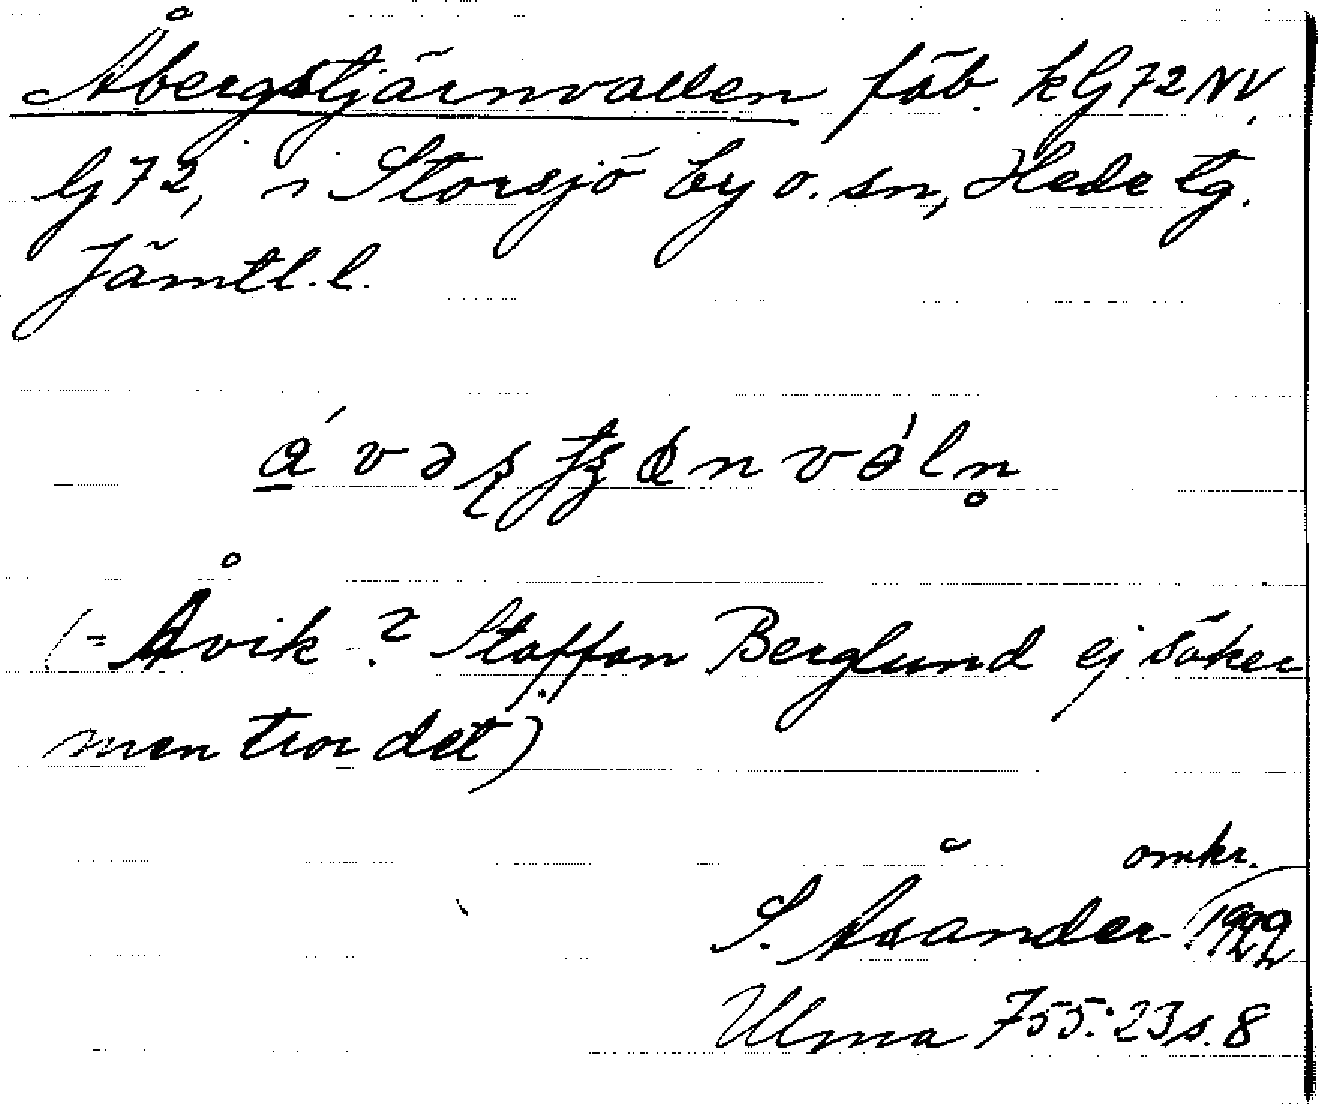 Åbergstjärnvallen fäb. kG72NV,
G72, i Storsjö by o. sn, Hede tg.
Jämtl.l.
(= Åvik? Staffan Berglund ej säker
men tror det)
omkr.
S. Åsander 1922
Ulma 755:23 s. 8